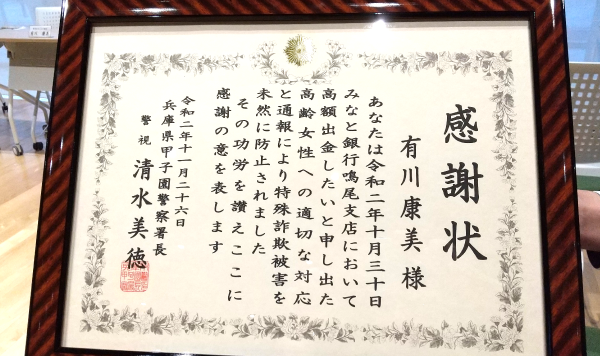 感謝状
有川康美様
あなたは令和二年十月三十日
みなと銀行鳴尾支店において
高額出金したいと申し出た
高齢女性への適切な対応
と通報により特殊詐欺被害を
未然に防止されました
その功労を讃えここに
感謝の意を表します
令和二年十一月二十六日
兵庫県甲子園警察署長
警視 清水美徳